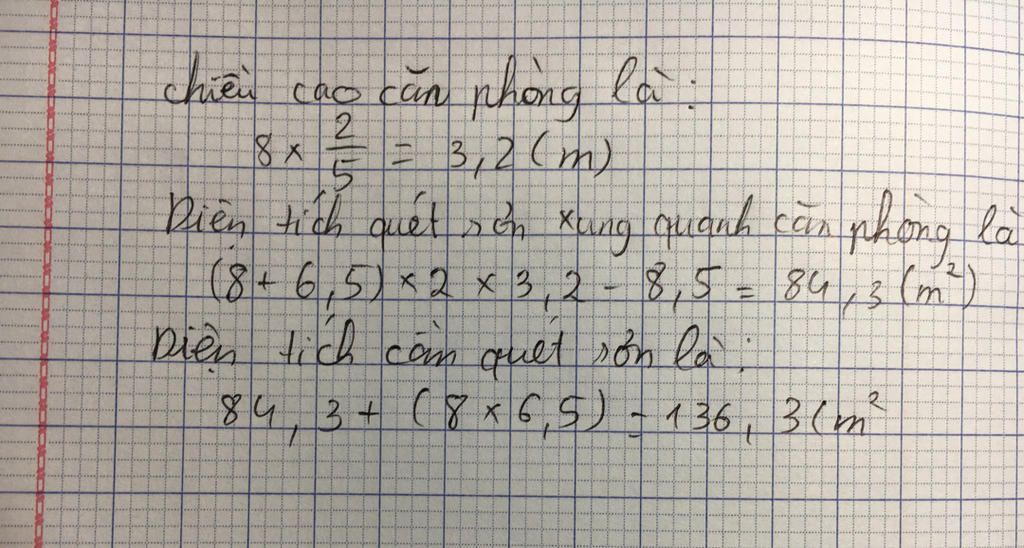 chiều cao căn phòng là:
8 × 2/5 = 3,2 (m)
Diện tích quét sơn xung quanh căn phòng là
(8 + 6,5) × 2 × 3,2 - 8,5 = 84,3 (m²)
Diện tích cần quét sơn là:
84,3 + (8 × 6,5) = 136,3 (m²